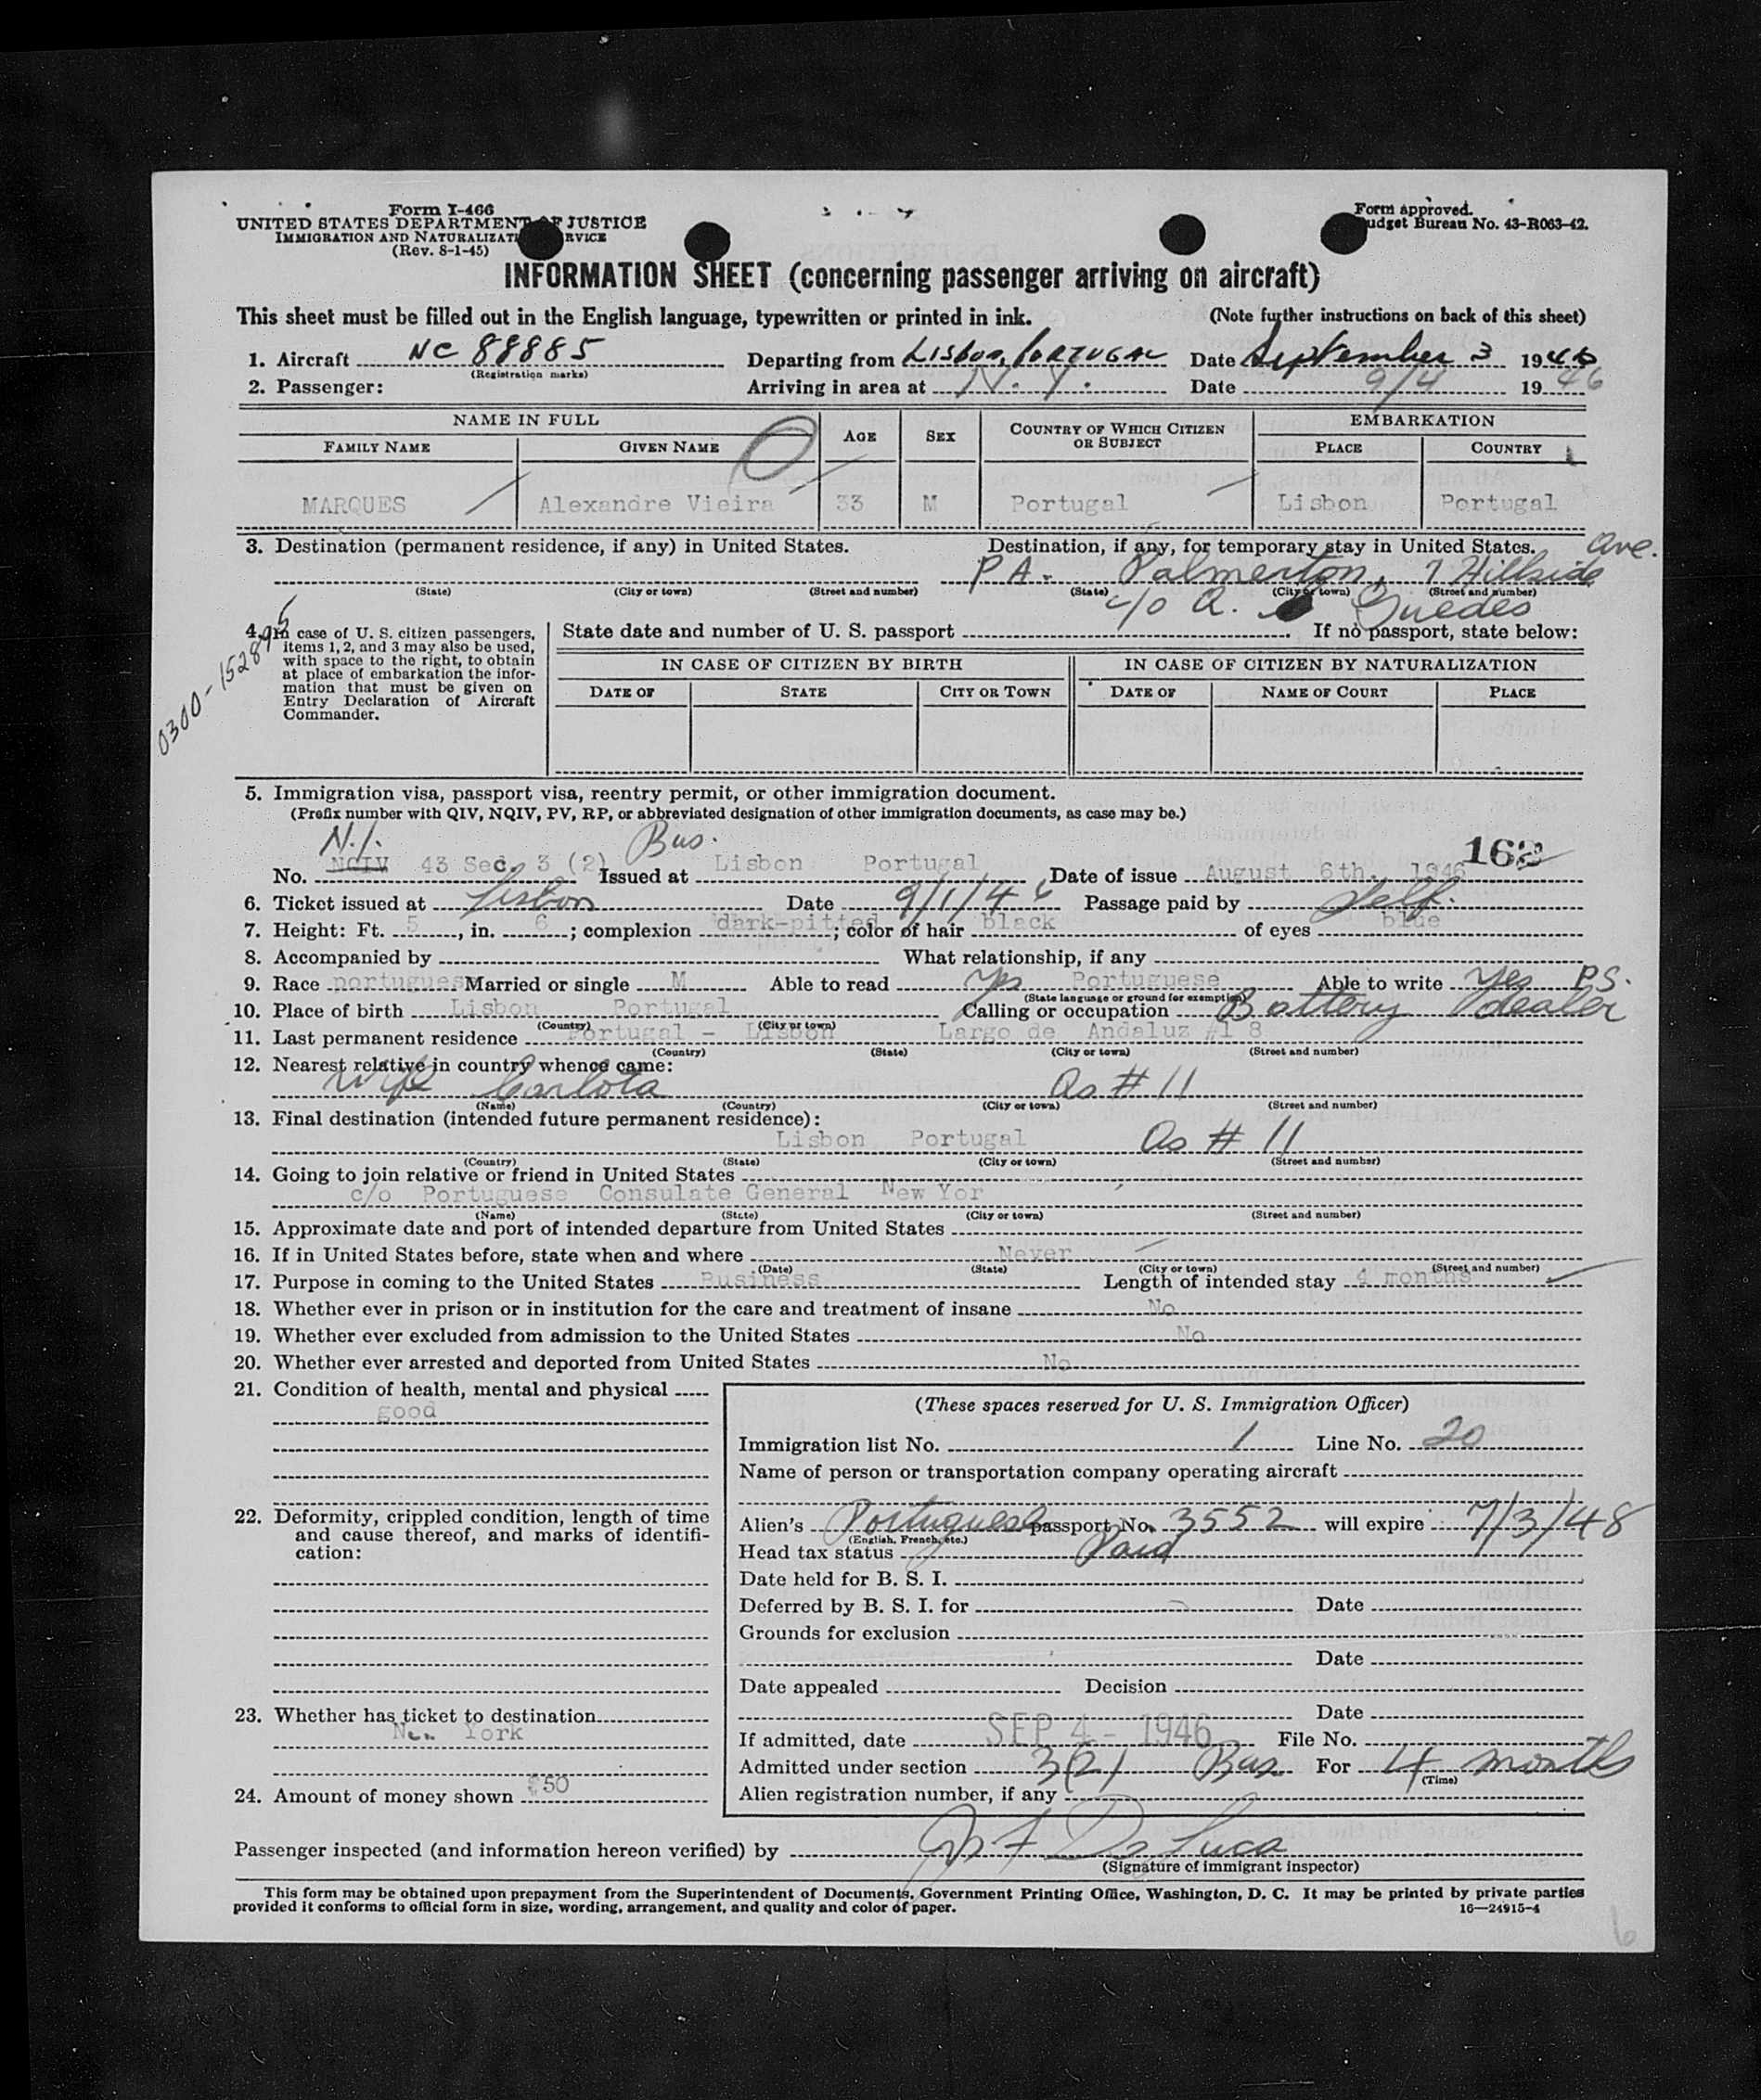 Form I-466
UNITED STATES DEPARTMENT OF JUSTICE
IMMIGRATION AND NATURALIZATI RVICE
(Rev. 8-1-45)
Form approved.
udget Bureau No. 43-R063-42.
INFORMATION SHEET (concerning passenger arriving on aircraft)
This sheet must be filled out in the English language, typewritten or printed in ink. (Note further instructions on back of this sheet)
1. Aircraft NC 88885 Departing from LISBON, PORTUGAL Date September 3 1946
(Registration marks)
2. Passenger: Arriving in area at N. Y. Date 9/4 1946
NAME IN FULL AGE SEX COUNTRY OF WHICH CITIZEN OR SUBJECT EMBARKATION
FAMILY NAME GIVEN NAME PLACE COUNTRY
MARQUES Alexandre Vieira 33 M Portugal Lisbon Portugal
3. Destination (permanent residence, if any) in United States. Destination, if any, for temporary stay in United States. Ave.
PA. Palmerton, 7 Hillside
(State) (City or town) (Street and number) (State) (City or town) (Street and number)
c/o A. Guedes
4. In case of U. S. citizen passengers, items 1, 2, and 3 may also be used, with space to the right, to obtain at place of embarkation the information that must be given on Entry Declaration of Aircraft Commander.
0300-152895
State date and number of U. S. passport If no passport, state below:
IN CASE OF CITIZEN BY BIRTH IN CASE OF CITIZEN BY NATURALIZATION
DATE OF STATE CITY OR TOWN DATE OF NAME OF COURT PLACE
5. Immigration visa, passport visa, reentry permit, or other immigration document.
(Prefix number with QIV, NQIV, PV, RP, or abbreviated designation of other immigration documents, as case may be.)
N.I. Bus. 162
No. NQIV 43 Sec. 3 (2) Issued at Lisbon Portugal Date of issue August 6th. 1946
6. Ticket issued at Lisbon Date 9/1/46 Passage paid by Self.
7. Height: Ft. 5, in. 6; complexion dark-pitted; color of hair black of eyes blue
8. Accompanied by What relationship, if any
9. Race portugues Married or single M Able to read yes Portuguese Able to write yes P.S.
(State language or ground for exemption)
10. Place of birth Lisbon Portugal Calling or occupation Battery dealer
(Country) (City or town)
11. Last permanent residence Portugal - Lisbon Largo de Andaluz #1 8
(Country) (State) (City or town) (Street and number)
12. Nearest relative in country whence came:
Wife Carlota As # 11
(Name) (Country) (City or town) (Street and number)
13. Final destination (intended future permanent residence):
Lisbon Portugal As # 11
(Country) (State) (City or town) (Street and number)
14. Going to join relative or friend in United States
c/o Portuguese Consulate General New Yor
(Name) (State) (City or town) (Street and number)
15. Approximate date and port of intended departure from United States
16. If in United States before, state when and where Never
(Date) (State) (City or town) (Street and number)
17. Purpose in coming to the United States Business Length of intended stay 4 months
18. Whether ever in prison or in institution for the care and treatment of insane No
19. Whether ever excluded from admission to the United States No
20. Whether ever arrested and deported from United States No
21. Condition of health, mental and physical
good
22. Deformity, crippled condition, length of time and cause thereof, and marks of identification:
23. Whether has ticket to destination
New York
24. Amount of money shown $50
(These spaces reserved for U. S. Immigration Officer)
Immigration list No. 1 Line No. 20
Name of person or transportation company operating aircraft
Alien's Portuguese passport No. 3552 will expire 7/3/48
(English, French, etc.)
Head tax status Paid
Date held for B. S. I.
Deferred by B. S. I. for Date
Grounds for exclusion
Date
Date appealed Decision
Date
If admitted, date SEP 4 - 1946 File No.
Admitted under section 3(2) Bus. For 4 months
(Time)
Alien registration number, if any
Passenger inspected (and information hereon verified) by De Luca
(Signature of immigrant inspector)
This form may be obtained upon prepayment from the Superintendent of Documents, Government Printing Office, Washington, D. C. It may be printed by private parties
provided it conforms to official form in size, wording, arrangement, and quality and color of paper. 16—24915-4
6